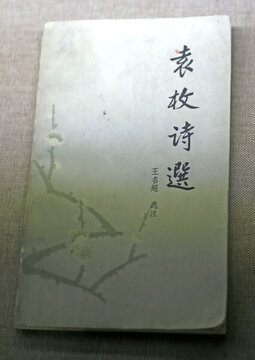 袁枚诗選
王名超 选注